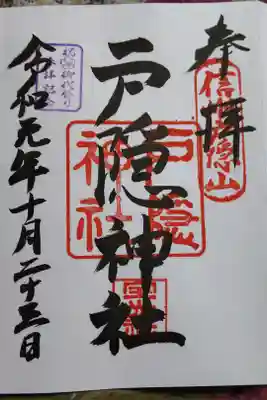 奉拝
信州戸隠山
戸隠神社
戸隠
神社
令和元年十月二十三日